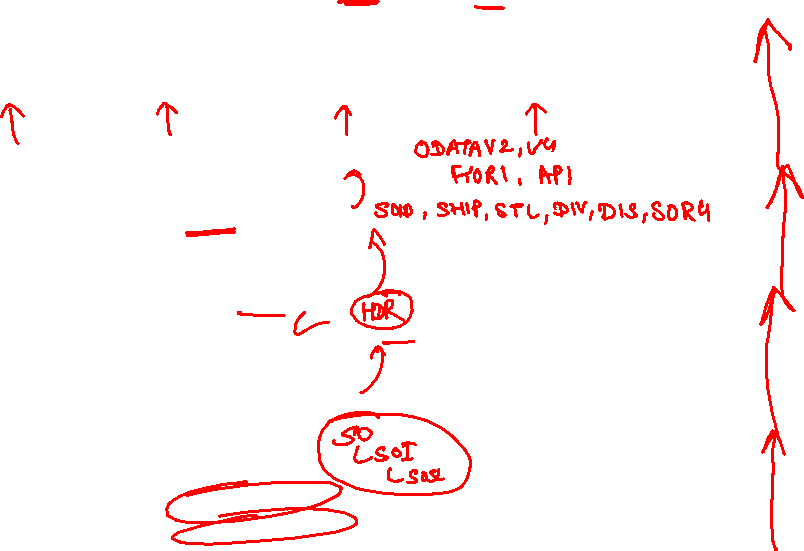 ODATAV2, V4
FIORI, API
SOLD, SHIP, STL, DIV, DIS, SORG
HDR
SO
SOI
SOSL